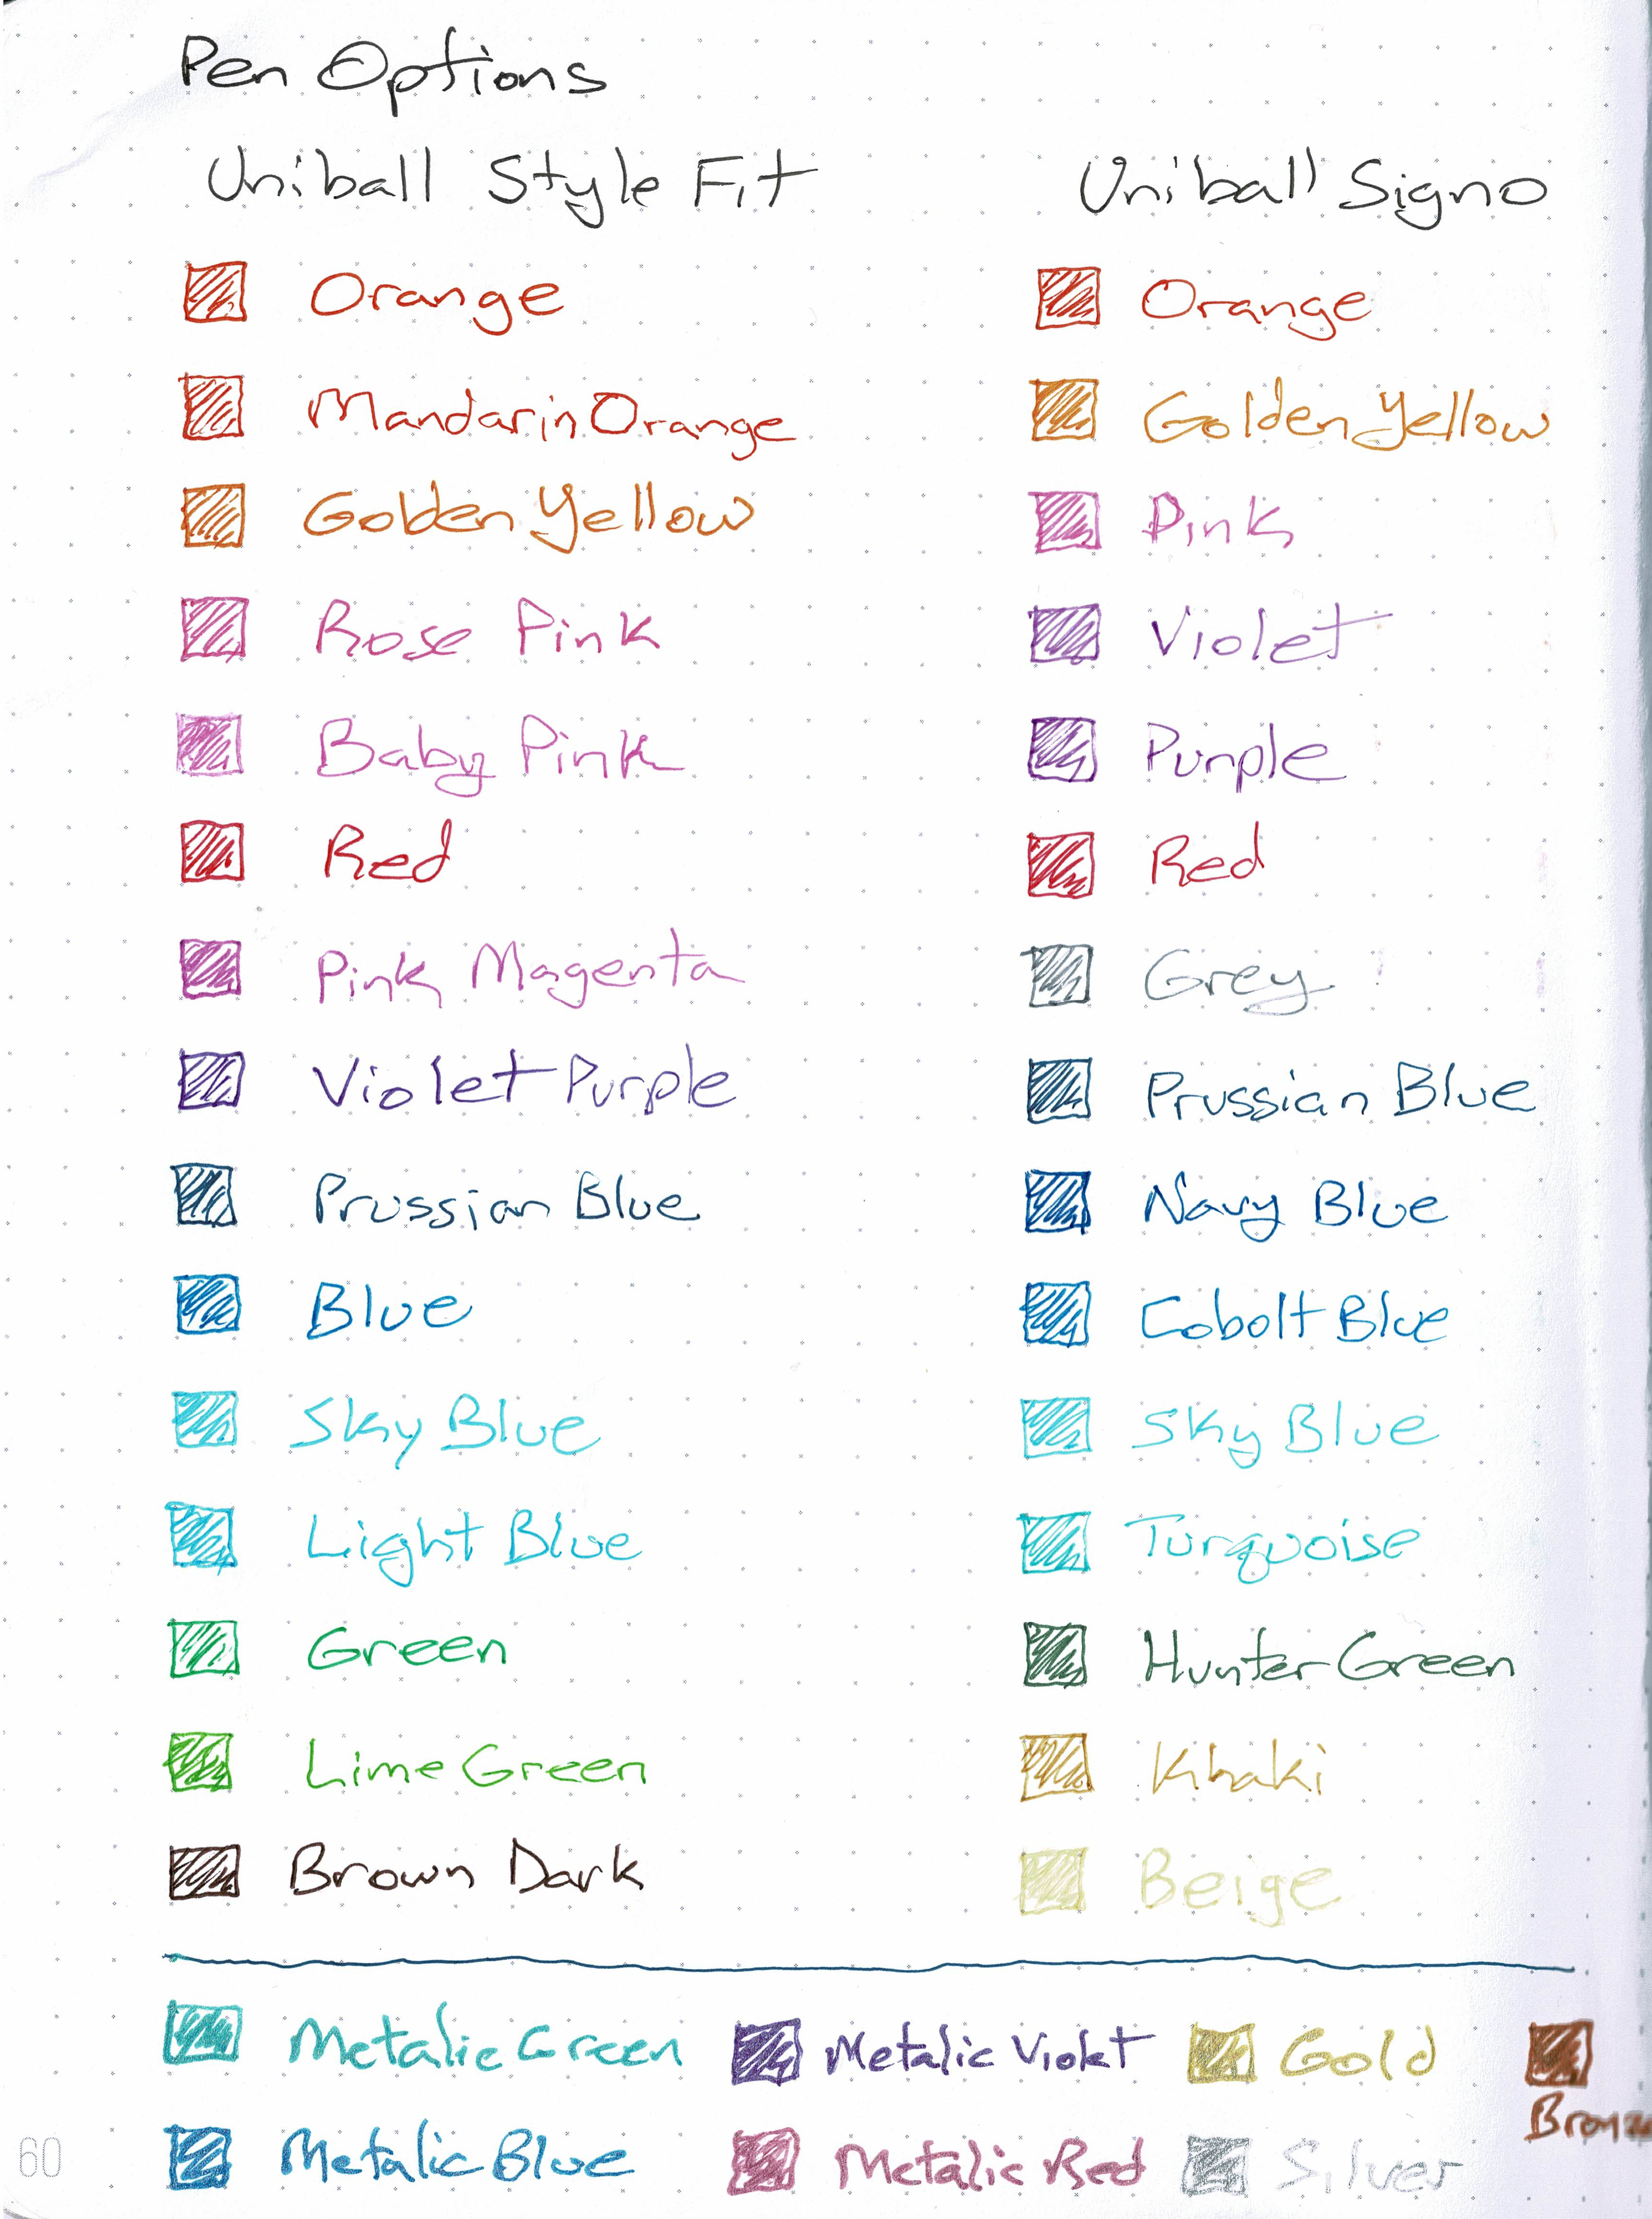 Pen Options
Uniball Style Fit
Orange
Mandarin Orange
Golden Yellow
Rose Pink
Baby Pink
Red
Pink Magenta
Violet Purple
Prussian Blue
Blue
Sky Blue
Light Blue
Green
Lime Green
Brown Dark
Uniball Signo
Orange
Golden Yellow
Pink
Violet
Purple
Red
Grey
Prussian Blue
Navy Blue
Cobolt Blue
Sky Blue
Turquoise
Hunter Green
Khaki
Beige
Metalic Green
Metalic Violet
Gold
Metalic Blue
Metalic Red
Silver
60